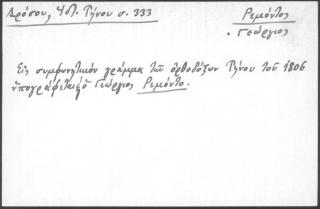 Δρόσου, Ἱστ. Τήνου σ. 333
Ρεμόντος
Γεώργιος
Εἰς συμφωνητικὸν γράμμα τῶν ὀρθοδόξων Τήνου τοῦ 1806
ὑπογράφεται ὁ Γεώργιος Ρεμόντο.